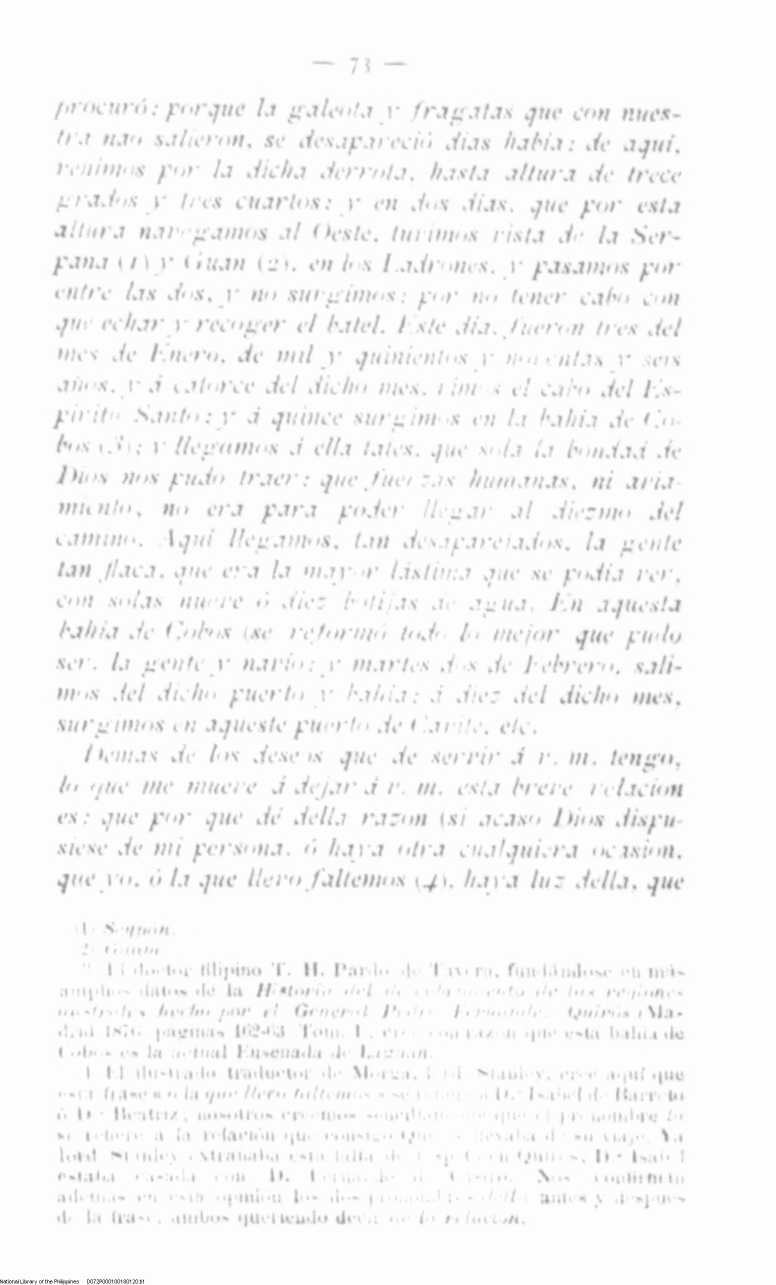 — 73 —
procuró: porque la galeota y fragatas que con nues-
tra nao salieron, se desapareció dias habia: de aquí,
venimos por la dicha derrota, hasta altura de trece
grados y tres cuartos: y en dos dias, que por esta
altura navegamos al Oeste, tuvimos vista de la Ser-
pana (1) y Guan (2), en los Ladrones, y pasamos por
entre las dos, y no surgimos: por no tener cabo con
que echar y recoger el batel. Este dia, fueron tres del
mes de Enero, de mil y quinientos y noventas y seis
años, y á catorce del dicho mes, vimos el cabo del Es-
píritu Santo: y á quince surgimos en la bahia de Co-
bos (3): y llegamos á ella tales, que sola la bondad de
Dios nos pudo traer: que fuerzas humanas, ni avia-
miento, no era para poder llegar al diezmo del
camino. Aquí llegamos, tan desaparejados, la gente
tan flaca, que era la mayor lástima que se podia ver,
con solas nueve ó diez botijas de agua. En aquesta
bahia de Cobos (se reformó todo lo mejor que pudo
ser, la gente y navío: y martes dos de Febrero, sali-
mos del dicho puerto y bahia: á diez del dicho mes,
surgimos en aqueste puerto de Cavite, etc.
Demas de los deseos que de servir á v. m. tengo,
lo que me mueve á dejar á v. m. esta breve relacion
es: que por que dé della razon (si acaso Dios dispu-
siese de mi persona, ó haya otra cualquiera ocasion,
que yo, ó la que llevo faltemos (4), haya luz della, que
(1)
(2)
El doctor filipino T. H. Pardo de Tavera, fundándose en más
amplios datos de la Historia del descubrimiento de las regiones
austriales hecho por el General Pedro Fernandez Quirós (Ma-
drid 1876, paginas 162-63. Tom. I, cree con razon que esta bahia de
Cobos es la actual Ensenada de
El ilustrado traductor de Morga, lord Stanley, cree aquí que
esta frase ó la que llevo faltemos se refiere á D.ª Isabel de Barreto
ó D.ª Beatriz, nosotros creemos sencillamente que el pronombre la
se refiere á la relación que consigo llevaba de su viaje. Ya
lord Stanley extrañaba esta falta de D.ª Isabel
estaba casada con D. Fernando de Castro. Nos confirman
ademas en esta opinion los dos pronombres della antes y despues
de la frase, ambos queriendo decir de la relacion.